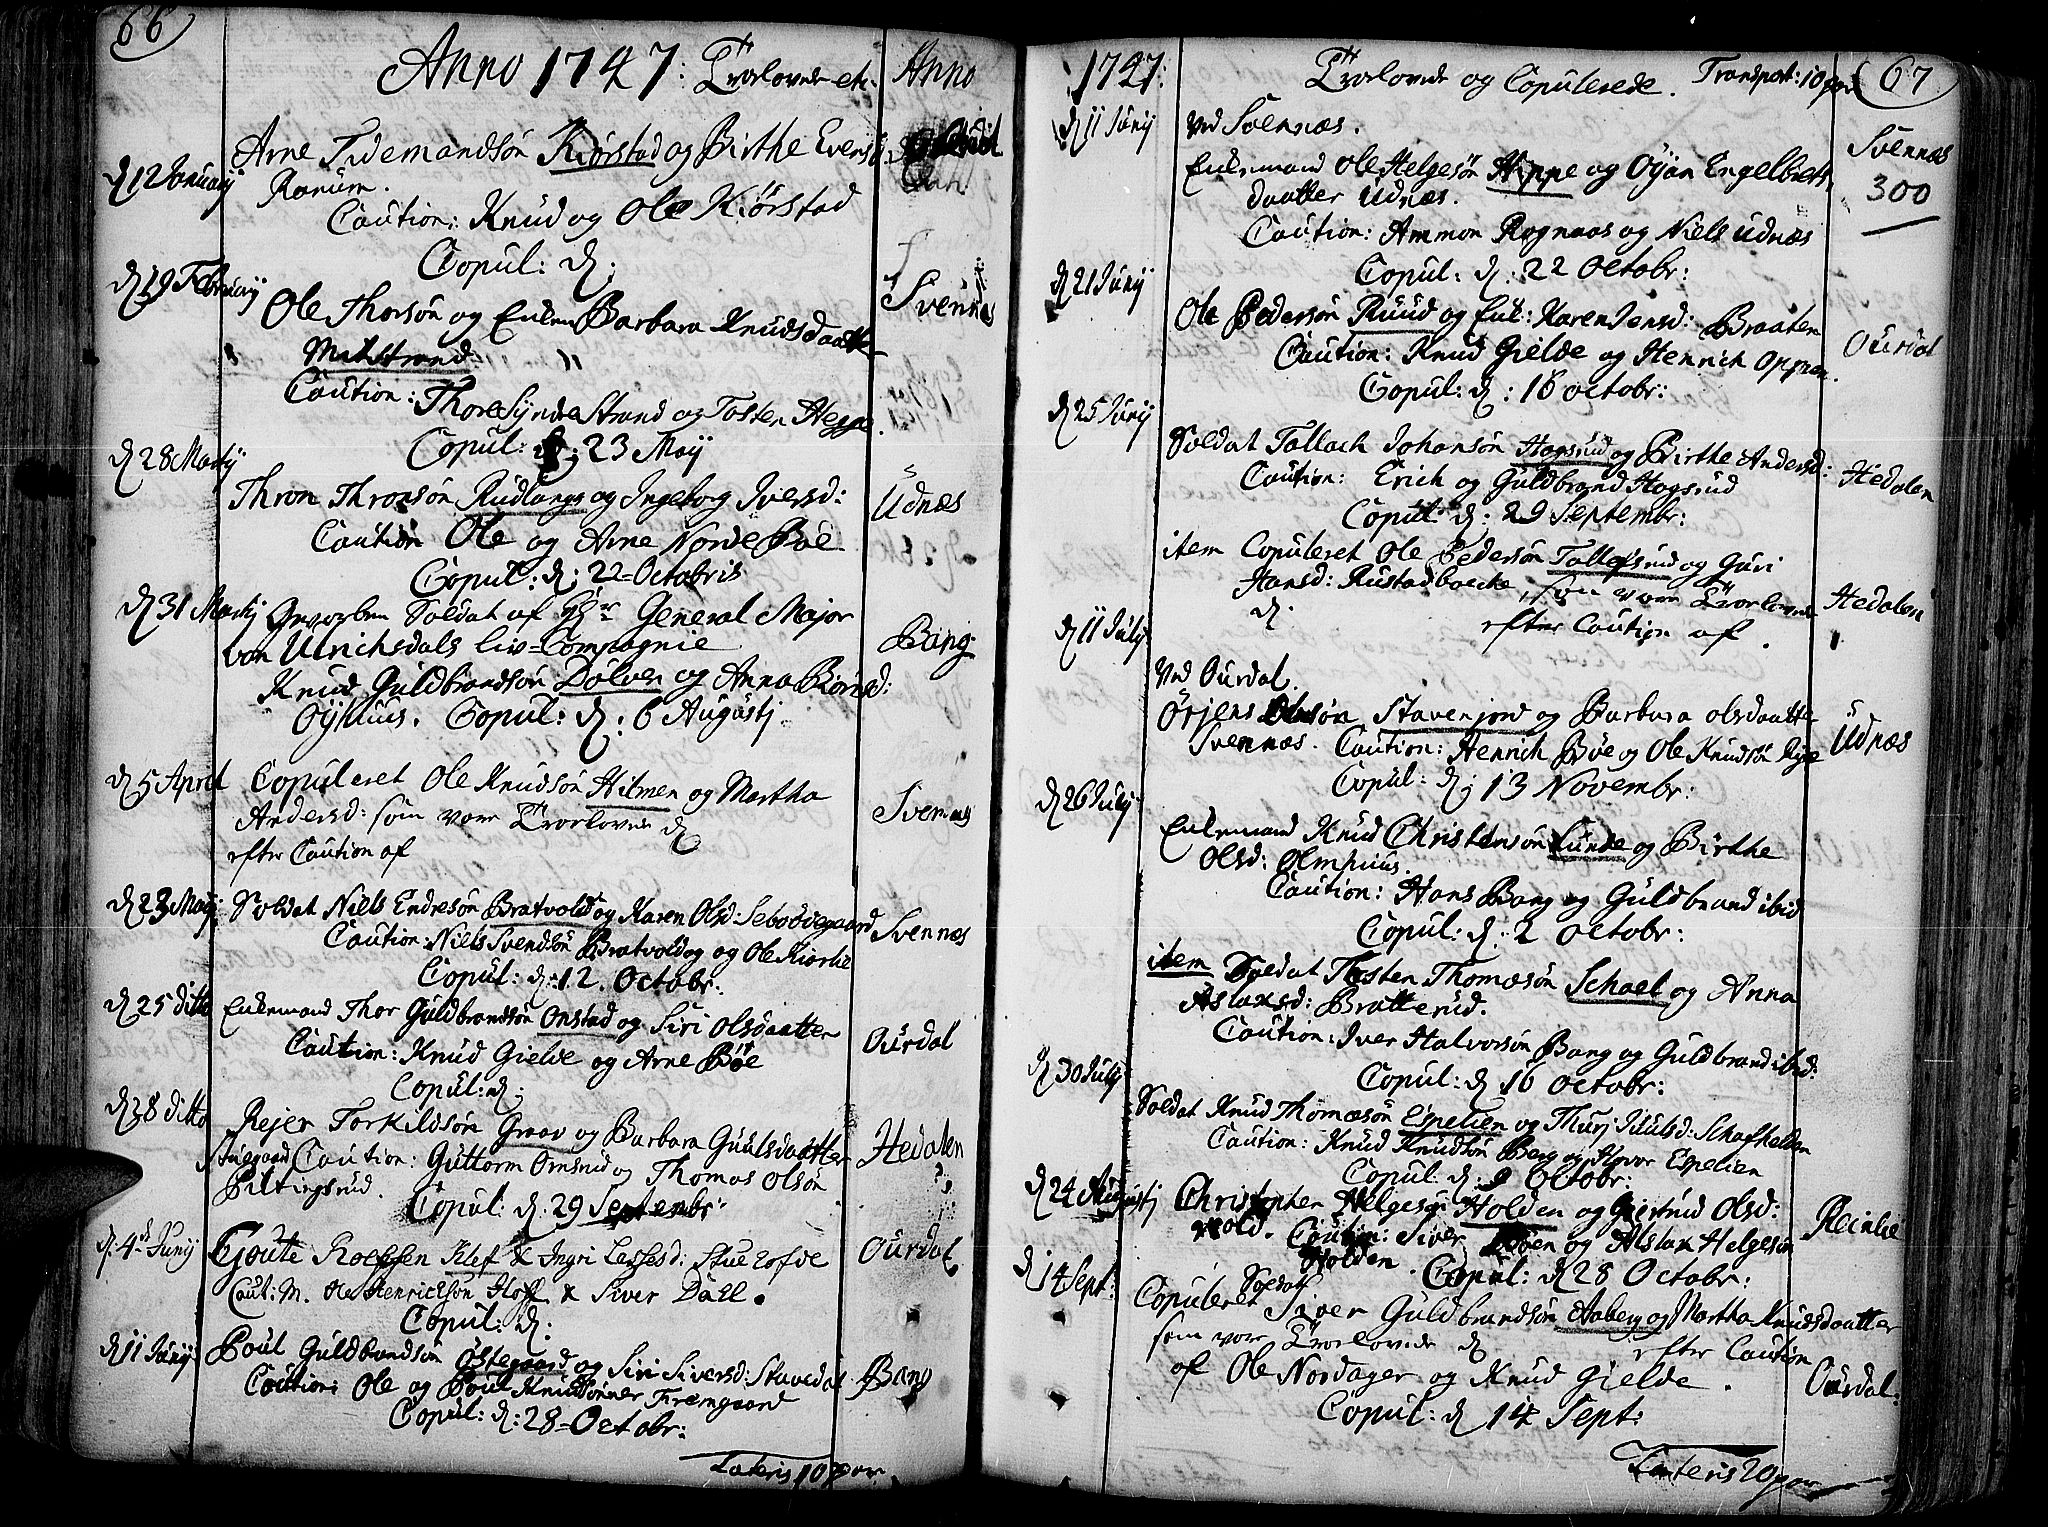 66
Anno 1747: Trorlovede etc. Anno
d 12 Januarij Arne Tidemandsøn Kiørstad og Birthe Eversd:
Ranum.
Caution: Knud og Ole Kiørstad
Copul: d:
d 19 Februarij Ole Thorsøn og Enken Barbara Knudsdaatter Svennæs
Midstrand
Caution: Thore Syndre Strand og Tosten Hegge.
Copul: d: 23 Maij
d 28 Martij Thron Thronsøn Rudlangs og Ingeborg Iversd: Udnæs
Caution Ole og Arne Nordre Bøe
Copul: d: 22 Octobris
d 31 Martij Gevorben Soldat af Hr General Major
von Ulrichsdals Liv-Compagnie Bang
Knud Guldbrandsøn Dølven og Anna Biørnsd:
Øyhuus. Copul: d: 6 Augustj
d 5 April Copuleret Ole Knudsøn Hilmen og Martha
Andersd: som vare Trorlovede d Svennæs
efter Caution af
d 23 Maij Soldat Niels Endresøn Bratvold og Karen Olsd: Sebodegaard Svennæs
Caution: Niels Svendsøn Bratvold og Ole Kiørlie
Copul: d: 12 Octobr:
d 25 ditto Enkemand Thor Guldbrandsøn Onstad og Siri Olsdaatter
Caution: Knud Gielde og Arne Bøe Ourdal
Copul: d:
d 28 ditto Rejer Torkildsøn Graav og Barbara Guulsdaatter
Caution: Guttorm Omsrud og Thomas Olsøn Hedalen
Piltingsrud.
Copul: d. 29 Septembr:
d. 4de Junij Gjoute Roessen Klef & Ingri Lassesd: Stuelofde Ourdal
Caut: M. Ole Henrichsøn Hoff & Siver Dahl.
Copul: d:
d 11 Junij Poul Guldbrandsøn Østegaard og Siri Siversd: Stavedal Bang
Caution: Ole og Poul Knudsønner Fremgaard
Copul: d: 28 Octobr:
Lateris 10 par
1747: Trorlovede og Copulerede. Transport: 10 par 67
d 11 Junij Ved Svennæs.
Enkemand Ole Helgesøn Hippe og Oÿan Engelbrets Svennæs
daatter Udnæs. 300
Caution: Ammon Rognaas og Niels Udnæs
Copul: d: 22 Octobr:
d 21 Junij Ole Pedersøn Ruud og Enk: Karen Jensd: Braaten Ourdal
Caution: Knud Gielde og Henrich Oppen.
Copul: d: 16 Octobr:
d 25 Junij Soldat Tollach Johansøn Hogsrud og Birthe Andersd: Hedalen
Caution: Erich og Guldbrand Hogsrud
Copul: d: 29 Septembr:
item Copuleret Ole Pedersøn Tollefsrud og Guri
Hansd: Rustadbacke, som vare Trorlovede Hedalen
d. efter Caution af.
d 11 Julij Ved Ourdal.
Ørjens Olsøn Stavenjord og Barbara Olsdaatter Udnæs
Svennæs. Caution: Henrich Bøe og Ole Knudsøn Rye
Copul: d: 13 Novembr:
d 26 Julij Enkemand Knud Christensøn Lunde og Birthe
Olsd: Olmhuus.
Caution: Hans Bang og Guldbrand ibid
Copul: d: 2 Octobr:
item Soldat Tosten Thomæsøn Schael og Anna
Aslaxsd: Bratterud.
Caution: Iver Halvorsøn Bang og Guldbrand ibid:
Copul: d 16 Octobr:
d 30 Julij Soldat Knud Thomæsøn Espelien og Thurj Juulsd: Schafhelden
Caution: Knud Knudsøn Berg og Hovor Espelien
Copul: d. 9 Octobr:
d 24 Augustj Christopher Helgesøn Holden og Giertrud Olsd:
Caution: Siver og Aslax Helgesøn Reinlie
Holden. Copul: d 28 Octobr:
d 14 Sept: Copuleret Soldat Siver Guldbrandsøn Aaberg og Martha Knudsdaatter
som vare Trorlovede d efter Caution
af Ole Nordager og Knud Gielde. Ourdal:
Copul: d 14 Sept:
Lateris 20 par